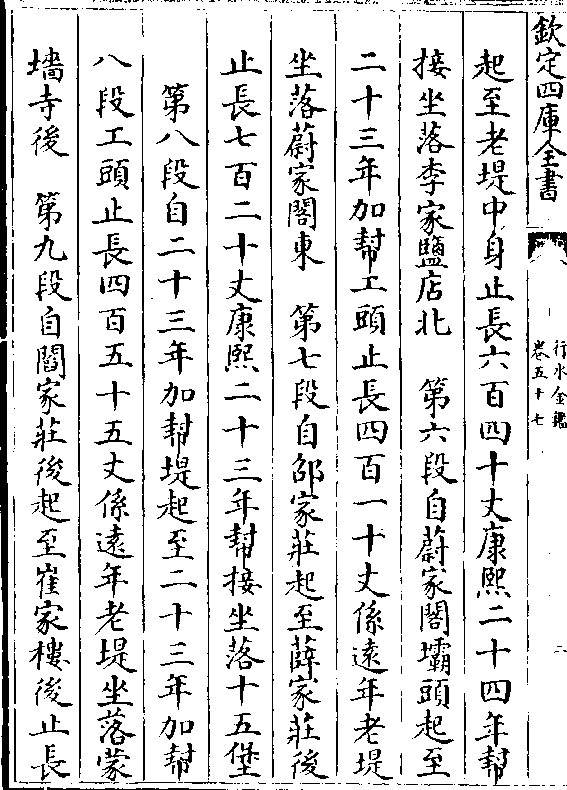 欽定四庫全書
行水金鑑
卷五十七
二
起至老堤中身止長六百四十丈康熙二十四年幫
接坐落李家鹽店北　第六段自蔚家閣壩頭起至
二十三年加幫工頭止長四百一十丈係遠年老堤
坐落蔚家閣東　第七段自邵家莊起至薛家莊後
止長七百二十丈康熙二十三年幫接坐落十五堡
第八段自二十三年加幫堤起至二十三年加幫
八段工頭止長四百五十五丈係遠年老堤坐落蒙
墻寺後　第九段自閻家莊後起至崔家樓後止長